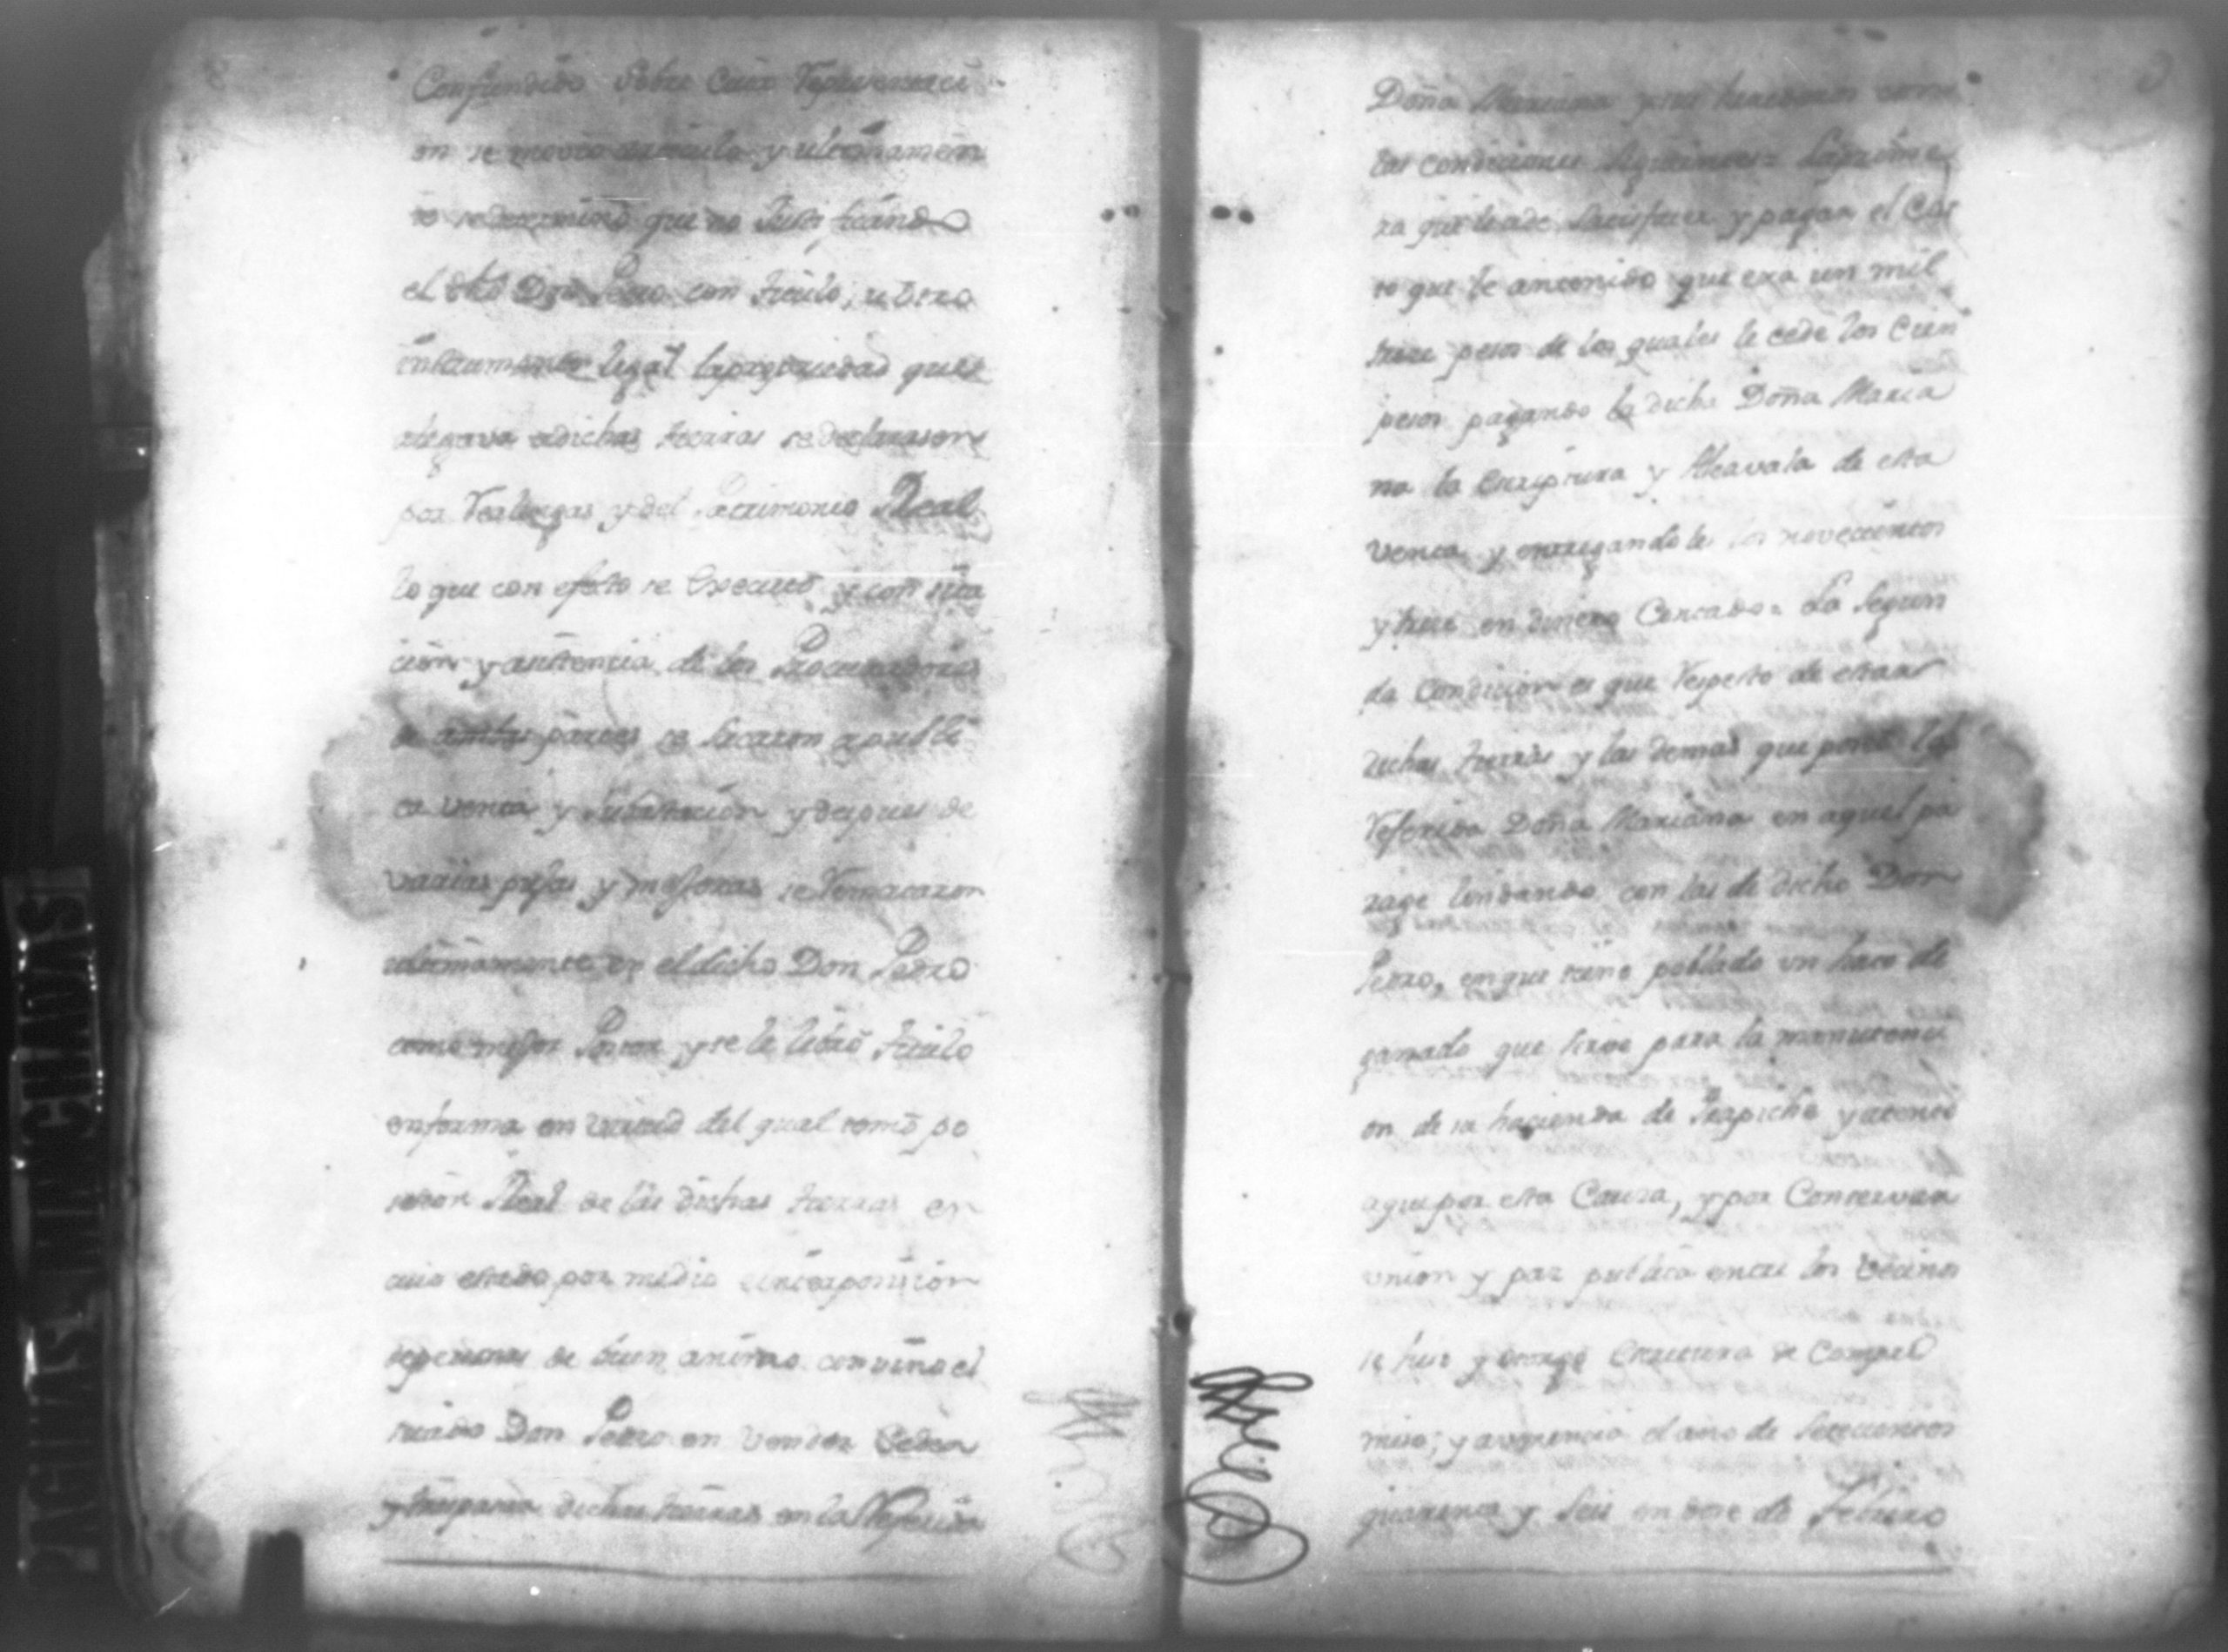 Confundido sobre cuia
on se movio articulo y ultimamen
te se determino que no Justificando
el dho Dn Pedro con titulo, u otro
instrumento legal la propriedad que
alegava a dichas tierras se declarasen
por Realengas y del Patrimonio Real
lo que con efecto se Executó y con sita
cion y asistencia de los Procuradores
de ambas partes se sacaron a publi
ca venta y subastacion y despues de
varias pujas y mejoras se Remataron
ultimamente en el dicho Don Pedro
como mejor Postor y se le libró titulo
en forma en virtud del qual tomó po
sesion Real de las dichas tierras en
cuio estado por medio e interposicion
de personas de buen animo convino el
citado Don Pedro en vender Ceder
y traspasar dichas tierras en la Referida
Doña Mariana y sus herederos con
las condiciones siguientes La prime
ra que le ha de satisfacer y pagar el Cos
to que le an tenido que era un mil
trece pesos de los quales le cede los Cien
pesos pagando la dicha Doña Maria
na la Escriptura y Alcavala de esta
venta y entregandole los novecientos
y trece en dinero Contado. La Segun
da Condicion es que Respecto de estar
dichas tierras y las demas que posee la
Referida Doña Mariana en aquel pa
rage lindando con las de dicho Don
Pedro, en que tiene poblado un hato de
ganado que sirve para la manutenci
on de su hacienda de Trapiche y atento
a que por esta Causa, y por Conservar
union y paz publica entre los vecinos
se hizo y otorgó Escritura de Compro
miso, y avenencia el año de Setecientos
quarenta y Seis en doce de Febrero
PAGINAS MANCHADAS